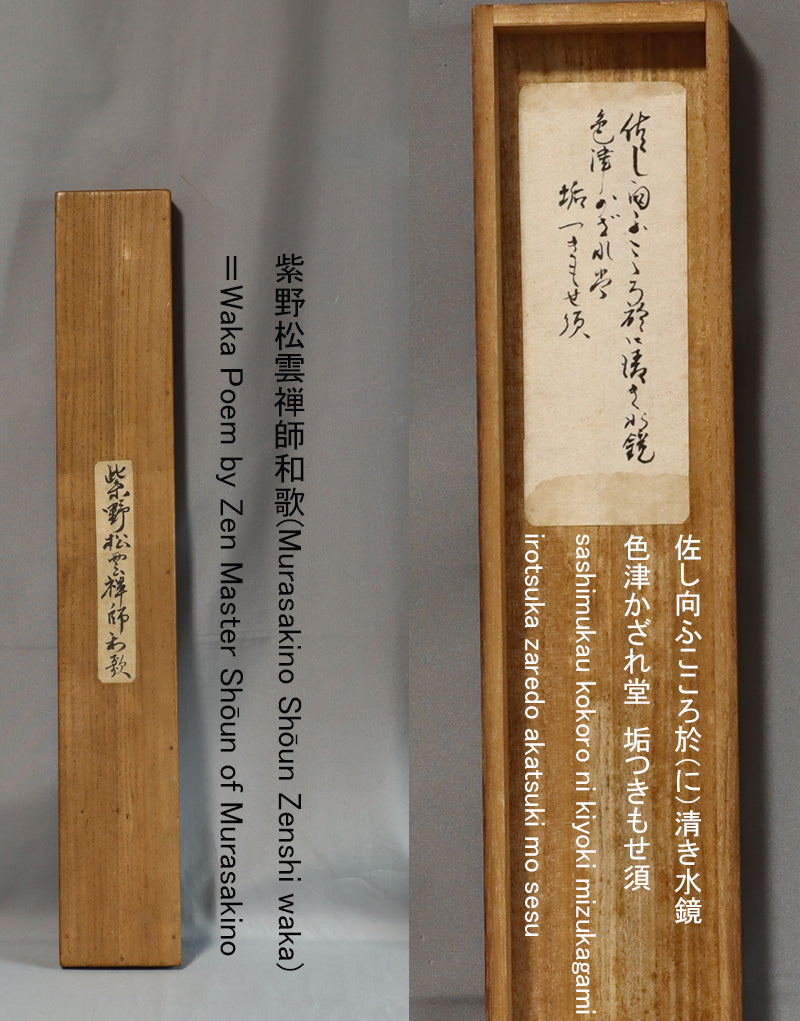 紫野松雲禅師和歌
紫野松雲禅師和歌(Murasakino Shōun Zenshi waka)
=Waka Poem by Zen Master Shōun of Murasakino
佐し向ふこゝろ於に清き水鏡
色津かざれ堂
垢つきもせ須
佐し向ふこころ於(に)清き水鏡
色津かざれ堂 垢つきもせ須
sashimukau kokoro ni kiyoki mizukagami
irotsuka zaredo akatsuki mo sesu